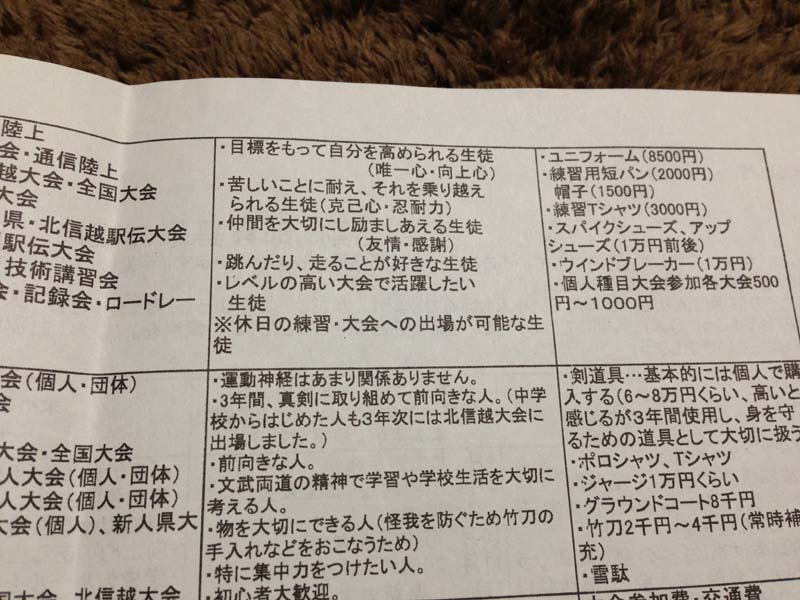 陸上
会・通信陸上
越大会・全国大会
大会
県・北信越駅伝大会
駅伝大会
技術講習会
会・記録会・ロードレー
・目標をもって自分を高められる生徒
（唯一心・向上心）
・苦しいことに耐え、それを乗り越え
られる生徒（克己心・忍耐力）
・仲間を大切にし励ましあえる生徒
（友情・感謝）
・跳んだり、走ることが好きな生徒
・レベルの高い大会で活躍したい
生徒
※休日の練習・大会への出場が可能な生
徒
・ユニフォーム（8500円）
・練習用短パン（2000円）
帽子（1500円）
・練習Tシャツ（3000円）
・スパイクシューズ、アップ
シューズ（1万円前後）
・ウインドブレーカー（1万円）
・個人種目大会参加各大会500
円～1000円
会（個人・団体）
会
大会・全国大会
人大会（個人・団体）
人大会（個人・団体）
大会（個人）、新人県大
大会・北信越大会
・運動神経はあまり関係ありません。
・3年間、真剣に取り組めて前向きな人。（中学
校からはじめた人も3年次には北信越大会に
出場しました。）
・前向きな人。
・文武両道の精神で学習や学校生活を大切に
考える人。
・物を大切にできる人（怪我を防ぐため竹刀の
手入れなどをおこなうため）
・特に集中力をつけたい人。
・初心者大歓迎。
・剣道具…基本的には個人で購
入する（6～8万円くらい、高いと
感じるが3年間使用し、身を守
るための道具として大切に扱う
・ポロシャツ、Tシャツ
・ジャージ1万円くらい
・グラウンドコート8千円
・竹刀2千円～4千円（常時補
充）
・雪駄
大会参加費・交通費